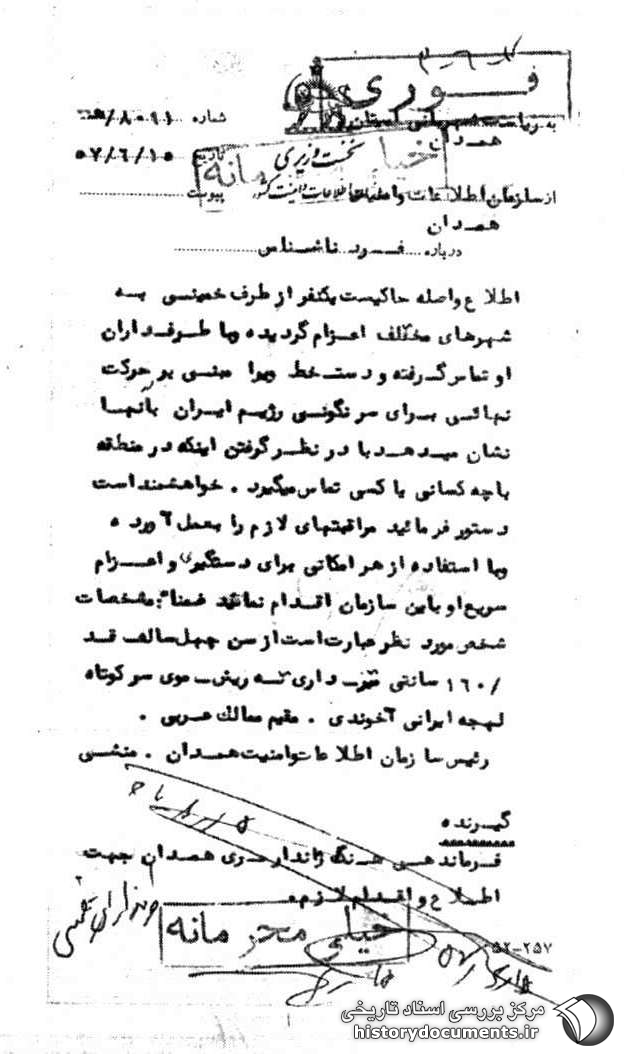 فوری
به ریاست شهربانی استان
همدان
شماره
تاریخ ۵۷/۶/۱۵
پیوست
نخست وزیری
خیلی محرمانه
از سازمان اطلاعات و امنیت
همدان
درباره فرد ناشناس
اطلاع واصله حاکیست یکنفر از طرف خمینی به
شهرهای مختلف اعزام گردیده وبا طرفداران
او تماس گرفته و دستخط ویرا مبنی بر حرکت
نهائی برای سرنگونی رژیم ایران بآنها
نشان میدهد با در نظر گرفتن اینکه در منطقه
باچه کسانی یا کسی تماس میگیرد . خواهشمند است
دستور فرمائید مراقبتهای لازم را بعمل آورده
وبا استفاده از هر امکانی برای دستگیری و اعزام
سریع او باین سازمان اقدام نمائید ضمنا" مشخصات
شخص مورد نظر عبارتست از سن چهل ساله قد
/۱۶۰ سانتی متر داری ته ریش موی سر کوتاه
لهجه ایرانی آخوندی . مقیم ممالک عربی .
رئیس سازمان اطلاعات وامنیت همدان . منشی
گیرنده
فرماندهی هنگ ژاندارمری همدان جهت
اطلاع و اقدام لازم
خیلی محرمانه
۵۲-۲۵۷
مرکز بررسی اسناد تاریخی
historydocuments.ir